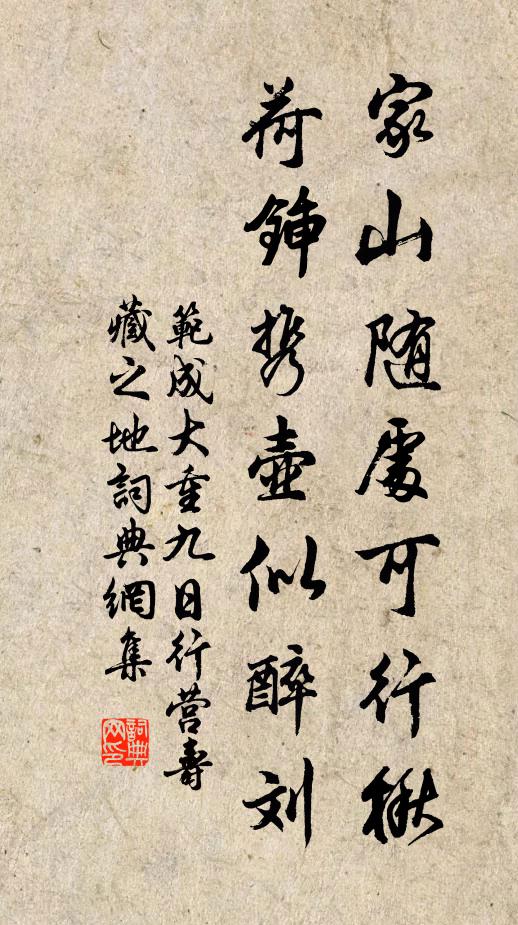 家山随處可行楸
荷鍤携壺似醉刘
範成大重九日行营壽
藏之地詞典網集
詞典
网印